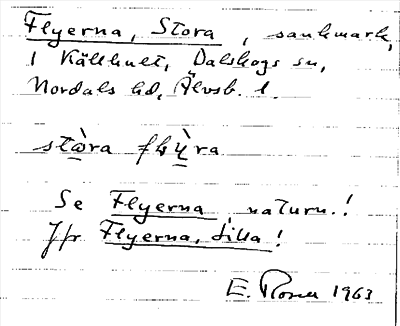 Flyerna, Stora, sankmark,
i Källhult, Dalskogs sn,
Nordals hd, Älvsb. l.
stὼra flẁy̠ra
Se Flyerna naturn.!
Jfr Flyerna, Lilla!
E. Rosell 1963